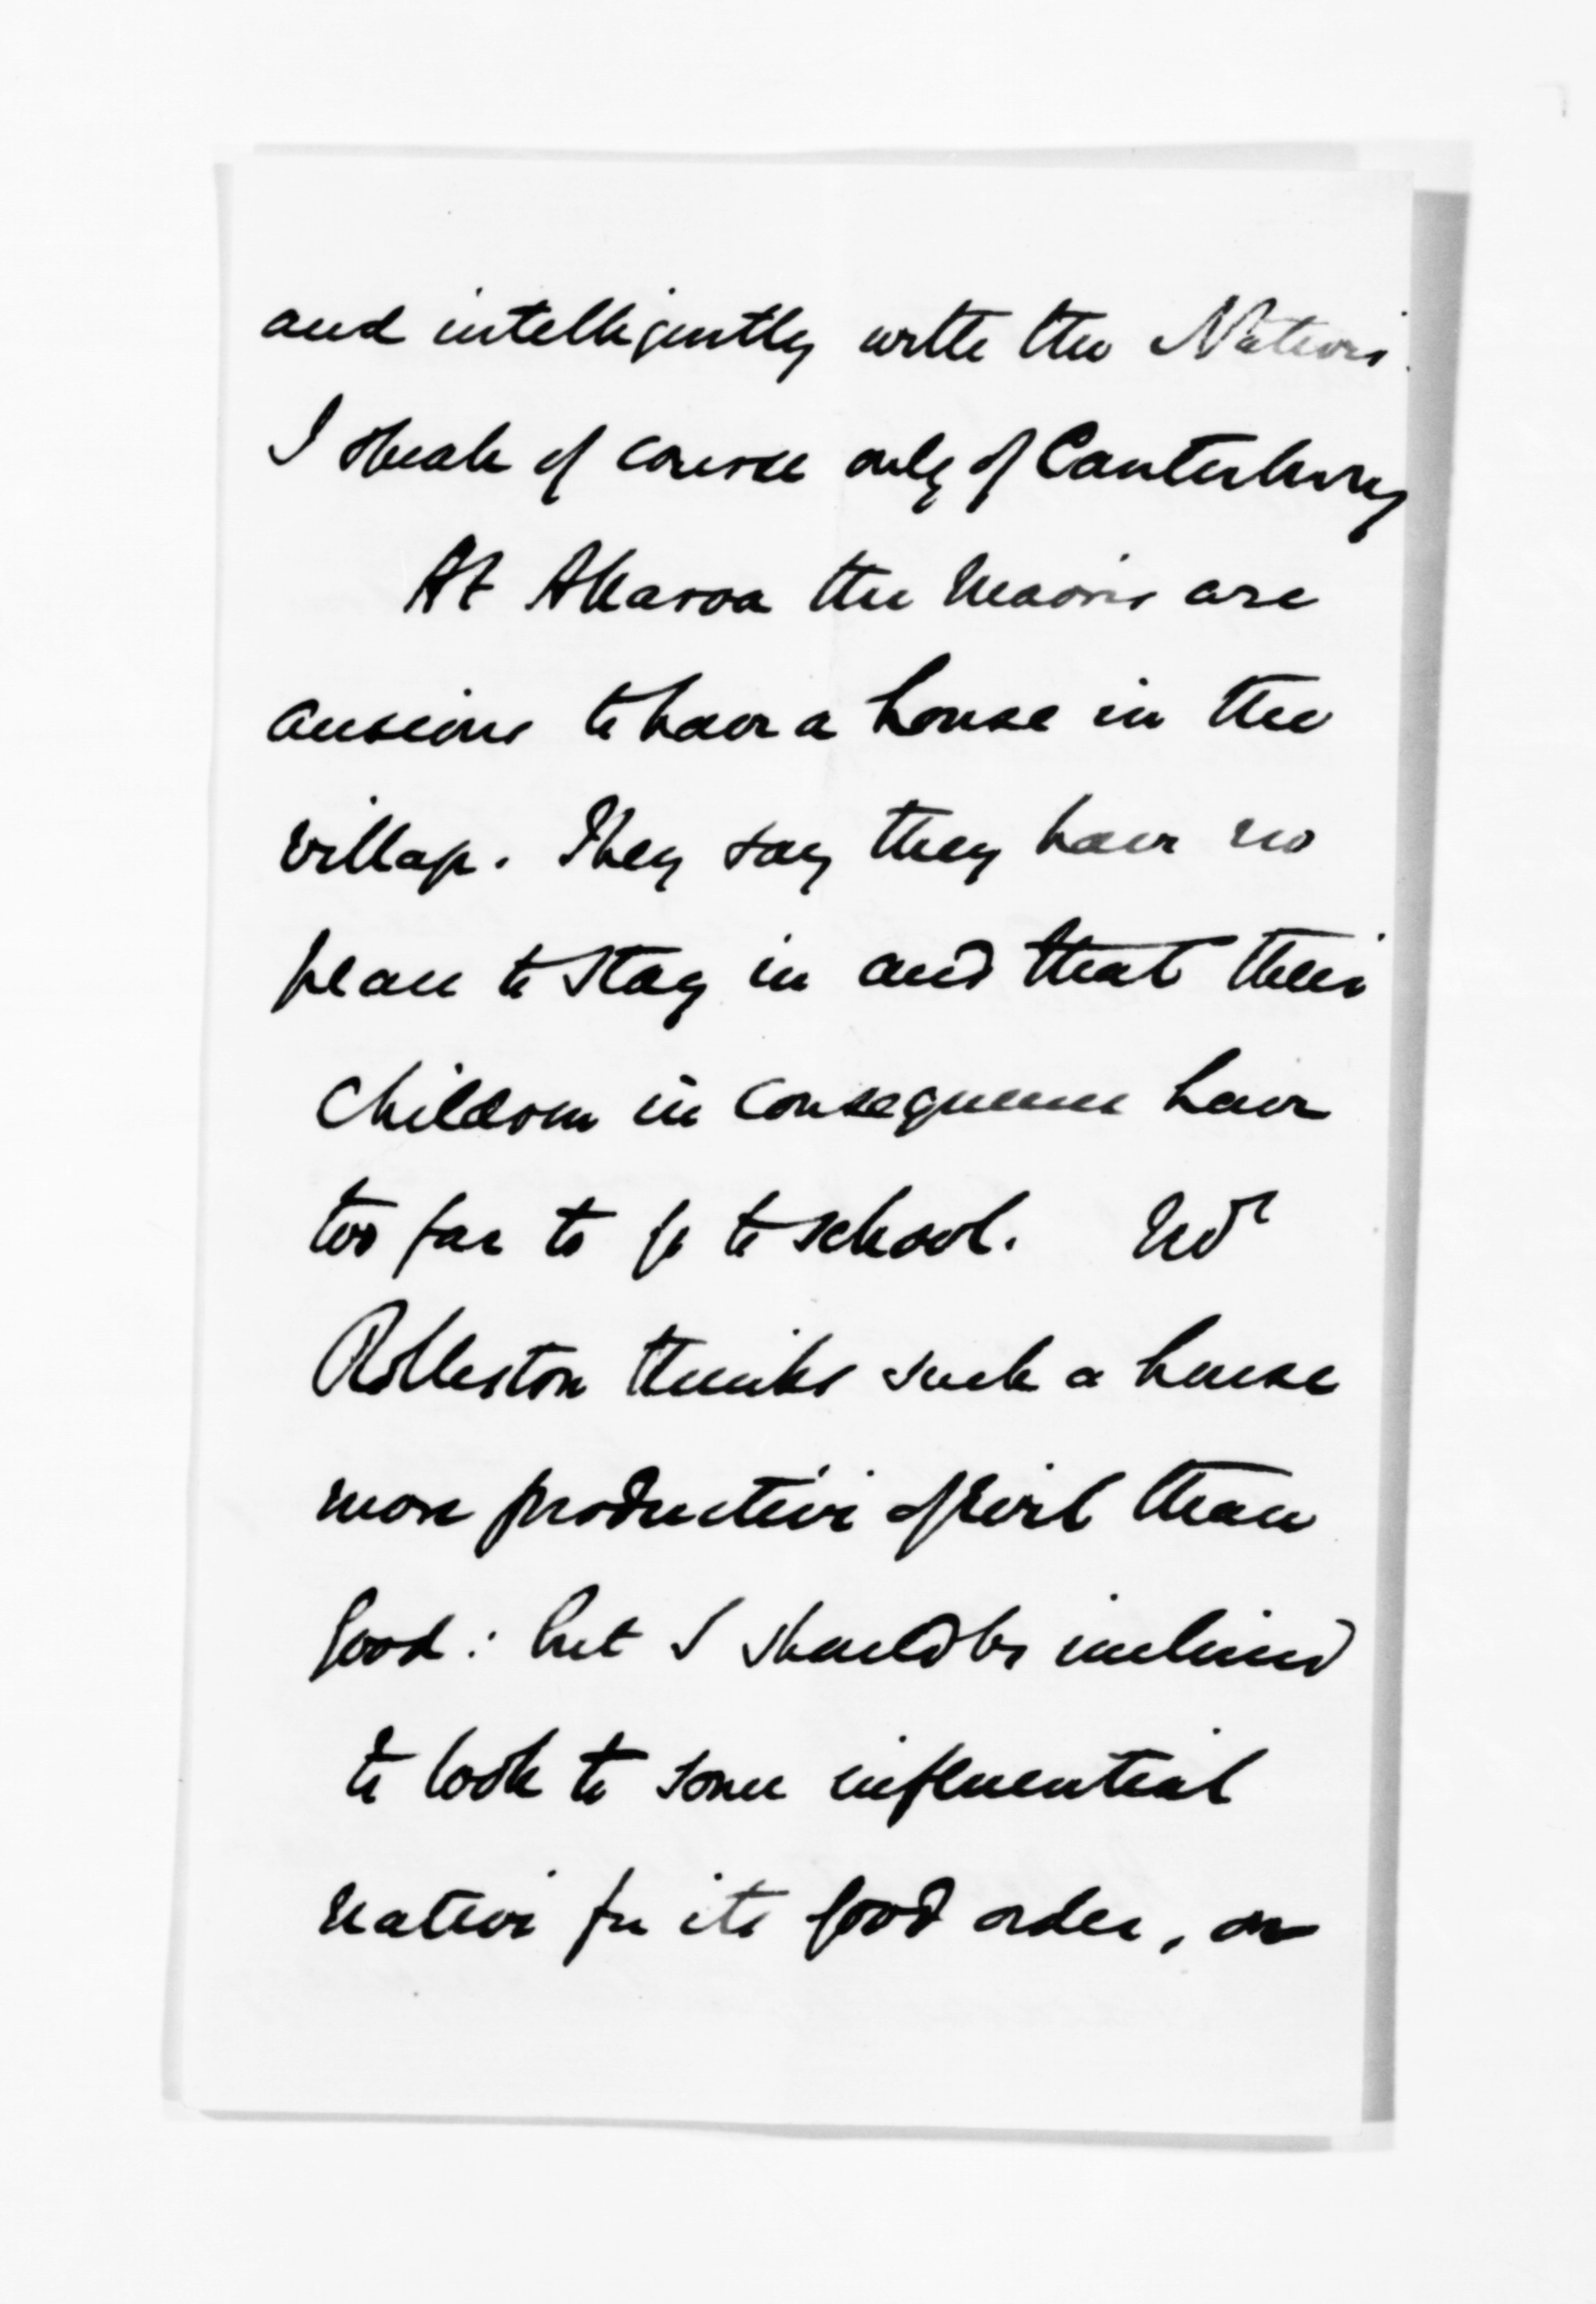 and intelligently with the Natives.
I speak of course only of Canterbury
At Akaroa the Maoris are
anxious to have a house in the
village. They say they have no
place to stay in and that their
children in consequence have
too far to go to school. Mr
Rolleston thinks such a house
more productive of evil than
good: but I should be inclined
to look to some influential
native for its good order, or